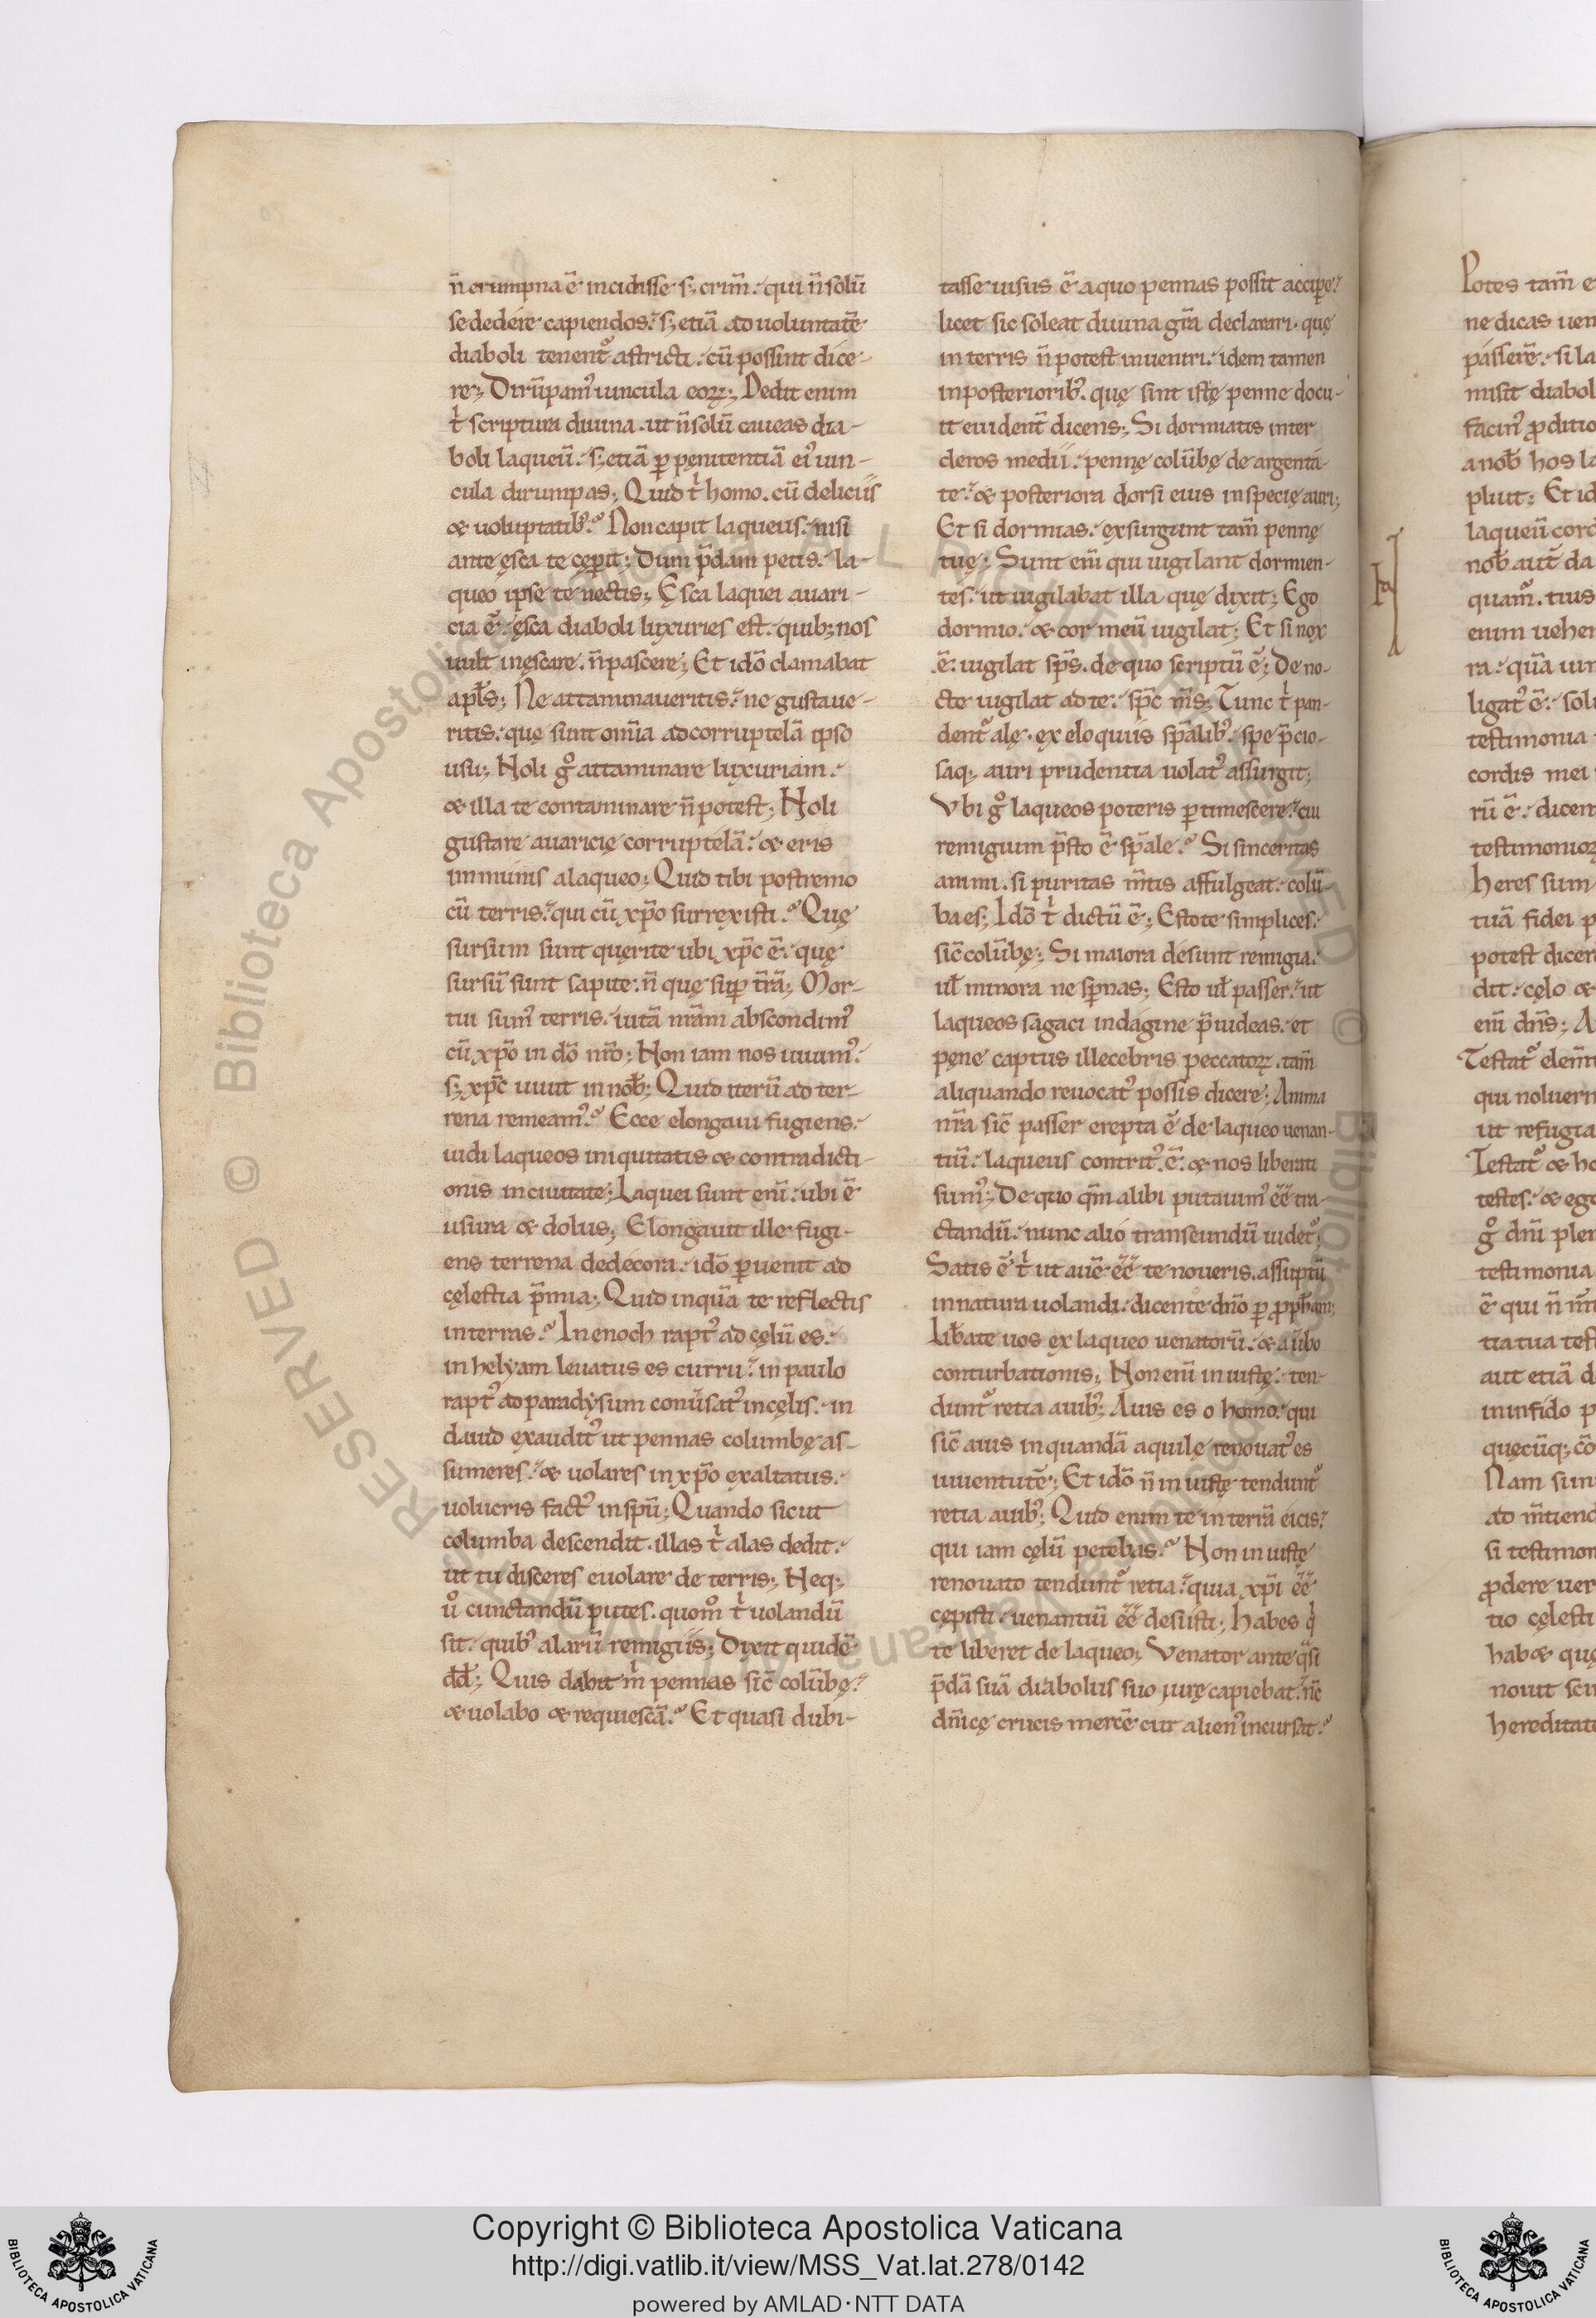 n̄ erumpna ē incidisse s; crim̄. qui n̄ solū
se dedére capiendos. s; etiā ad uoluntatē
diaboli tenent᷑ astricti. cū possint dice-
re; Dirūpam᷒ uincula eoꝝ; Dedit enim
t̓ scriptura diuina. ut n̄ solū caueas dia-
boli laqueū. s; etiā ꝑ pęnitentiā ei᷒ uin-
cula dirumpas; Quid t̓ homo. cū deliciis
& uoluptatib᷒? Non capit laqueus. nisi
ante ęsca te cęꝑit; Dum p̄dam petis. la-
queo ipse te nectis; Ęsca laquei auari-
cia ē. ęsca diaboli luxuries est. quib; nos
uult inęscare. n̄ pascere; Et idō clamabat
apl̄s; Ne attaminaueritis. ne gustaue-
ritis. quę sunt om̄ia ad corruptelā ipso
usu; Noli g̊ attaminare luxuriam.
& illa te contaminare n̄ potest; Noli
gustare auaricię corruptelā. & eris
immunis a laqueo; Quid tibi postremo
cū terris. qui cū xp̄o surrexisti? Quę
sursum sunt quęrite ubi xp̄c ē. quę
sursū sunt sapite. n̄ quę suꝑ t̄rā; Mor-
tui sum᷒ terris. uitā n̄rām abscondim᷒
cū xp̄o in dō nr̄o; Non iam nos uiuim᷒.
s; xp̄c uiuit in nob̄; Quid iterū ad ter-
rena remeam᷒? Ecce elongaui fugiens.
uidi laqueos iniquitatis & contradicti-
onis in ciuitate; Laquei sunt enī. ubi ē
usura & dolus; Elongauit ille fugi-
ens terrena dedécora. idō ꝑuenit ad
cęlestia p̄mia; Quid inquā te reflectis
in terras? In enoch rapt᷒ ad cęlū es.
in helyam leuatus es curru. in paulo
rapt᷒ ad paradysum conūsat᷒ in cęlis. in
dauid exaudit᷒ ut pennas columbę as-
sumeres. & uolares in xp̄o exaltatus.
uolucris fact᷒ in spū; Quando sicut
columba descendit. illas t̓ alas dedit.
ut tu disceres euolare de terris; Neq;
ůo cunctandū putes. quom̊ t̓ uolandū
sit. quib᷒ alarū remigiis; Dixit quidē
dd̄; Quis dabit m̓ pennas sic̄ colūbę.
& uolabo & requiescā? Et quasi dubi-
tasse uisus ē a quo pennas possit acciꝑe.
licet sic soleat diuina gr̄a declarari. quę
in terris n̄ potest inueniri. idem tamen
in posteriorib᷒. quę sint istę penne docu-
it euident̄ dicens; Si dormiatis inter
cleros medii. pennę colūbę de argenta-
te. & posteriora dorsi eius in specię auri;
Et si dormias. exsurgunt tam̄ pennę
tuę; Sunt enī qui uigilant dormien-
tes. ut uigilabat illa quę dixit; Ego
dormio. & cor meū uigilat; Et si nox
ē. uigilat sp̄s. de quo scriptū ē; De no-
cte uigilat ad te. sp̄c m̄s; Tunc t̓ pan-
dent᷑ alę. ex eloquiis sp̄alib᷒. spe p̄cio-
saq; auri prudentia uolat᷒ assurgit;
Vbi g̊ laqueos poteris ꝑtimescere. cui
remigium p̄sto ē sp̄ale? Si sinceritas
animi. si puritas m̄tis affulgeat. colū-
ba es; Idō t̓ dictū ē; Estote simplices.
sic̄ colūbę; Si maiora désunt remigia.
ul̄ minora ne sꝑnas; Esto ul̄ passer. ut
laqueos sagaci indagine p̄uideas. et
pęne captus illecebris peccatoꝝ. tam̄
aliquando reuocat᷒ possis dicere; Anima
nr̄a sic̄ passer erepta ē de laqueo uenan-
tiū. laqueus contrit᷒ ē. & nos liberati
sum᷒; De quo qm̄ alibi putauim᷒ ēē tra-
ctandū. nunc alió transeundū uidet᷑;
Satis ē t̓ ut auē ēē te noueris. assūptū
in natura uolandi. dicente dn̄o ꝑ ꝓph̄am;
Lib̄ate uos ex laqueo uenatorū. & a ūbo
conturbationis; Non enī iniustę. ten-
dunt᷑ retia auib᷒; Auis es o homo. qui
sic̄ auis in quandā aquilę renouat᷒ es
iuuentutē; Et idō n̄ iniustę tendunt᷑
retia auib᷒; Quid enim te in terrā eicis.
qui iam cęlū petebas? Non iniustę
renouato tendunt᷑ retia. quia xp̄i ēē
cępisti. uenantiū ēē desisti; Habes q̓
te liberet de laqueo; Venator ante q̄si
p̄dā suā diabolus suo jurę capiebat. nc̄
dn̄icę crucis mercē cur alien᷒ incursat?
Potes tam̄ e
ne dicas uen
passerē. si la
misit diabol
facin᷒ ꝓditio
a nob̄ hos la
pluit; Et id
laqueū cord
nob̄ aut̄ da
quam̊. tuis
enim uehem
ra. quā uin
ligat᷒ ē. solu
testimonia
cordis mei
rū ē. dicen
testimonioꝝ
heres sum
tuā fidei p
potest dicer
dit. cęlo &
enī dn̄s; A
Testat᷑ elem̄
qui noluerin
ut refugia
Testat᷑ & ho
testes. & ego
g̊ dn̄i plen
testimonia
ē qui n̄ m̄
tia tua test
aut etiā d
in infido p
quęcūq; cō
Nam sunt
ad m̄tiend
si testimon
ꝓdere uer
tio cęlesti
hab& quę
nouit scu
hereditate
Copyright © Biblioteca Apostolica Vaticana
http://digi.vatlib.it/view/MSS_Vat.lat.278/0142
powered by AMLAD·NTT DATA
BIBLIOTECA APOSTOLICA VATICANA
BIBLIOTECA APOSTOLICA VATICANA